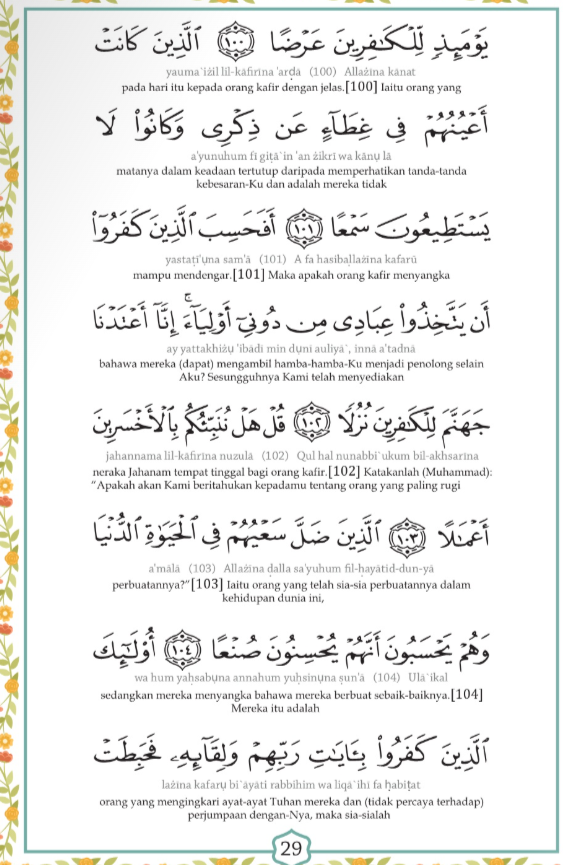 يَوْمَئِذٍ لِّلْكَٰفِرِينَ عَرْضًا ﴿١٠٠﴾ الَّذِينَ كَانَتْ
yauma`iżil lil-kāfirīna 'arḍa (100) Allażīna kānat
pada hari itu kepada orang kafir dengan jelas.[100] Iaitu orang yang
أَعْيُنُهُمْ فِى غِطَآءٍ عَن ذِكْرِى وَكَانُوا۟ لَا
a'yunuhum fī giṭā`in 'an żikrī wa kānụ lā
matanya dalam keadaan tertutup daripada memperhatikan tanda-tanda
kebesaran-Ku dan adalah mereka tidak
يَسْتَطِيعُونَ سَمْعًا ﴿١٠١﴾ أَفَحَسِبَ الَّذِينَ كَفَرُوٓا۟
yastaṭī'ụna sam'ā (101) A fa hasiballażīna kafarū
mampu mendengar.[101] Maka apakah orang kafir menyangka
أَن يَتَّخِذُوا۟ عِبَادِى مِن دُونِىٓ أَوْلِيَآءَ ۚ إِنَّآ أَعْتَدْنَا
ay yattakhiżụ 'ibādī min dụnī auliyā`, innā a'tadnā
bahawa mereka (dapat) mengambil hamba-hamba-Ku menjadi penolong selain
Aku? Sesungguhnya Kami telah menyediakan
جَهَنَّمَ لِلْكَٰفِرِينَ نُزُلًا ﴿١٠٢﴾ قُلْ هَلْ نُنَبِّئُكُم بِالْأَخْسَرِينَ
jahannama lil-kāfirīna nuzula (102) Qul hal nunabbi`ukum bil-akhsarīna
neraka Jahanam tempat tinggal bagi orang kafir.[102] Katakanlah (Muhammad):
"Apakah akan Kami beritahukan kepadamu tentang orang yang paling rugi
أَعْمَٰلًا ﴿١٠٣﴾ الَّذِينَ ضَلَّ سَعْيُهُمْ فِى الْحَيَوٰةِ الدُّنْيَا
a'mālā (103) Allażīna ḍalla sa'yuhum fil-ḥayātid-dun-yā
perbuatannya?"[103] Iaitu orang yang telah sia-sia perbuatannya dalam
kehidupan dunia ini,
وَهُمْ يَحْسَبُونَ أَنَّهُمْ يُحْسِنُونَ صُنْعًا ﴿١٠٤﴾ أُو۟لَٰٓئِكَ
wa hum yaḥsabụna annahum yuḥsinụna ṣun'ā (104) Ulā`ikal
sedangkan mereka menyangka bahawa mereka berbuat sebaik-baiknya.[104]
Mereka itu adalah
الَّذِينَ كَفَرُوا۟ بِـَٔايَٰتِ رَبِّهِمْ وَلِقَآئِهِۦ فَحَبِطَتْ
lażīna kafarụ bi`āyāti rabbihim wa liqā`ihī fa ḥabiṭat
orang yang mengingkari ayat-ayat Tuhan mereka dan (tidak percaya terhadap)
perjumpaan dengan-Nya, maka sia-sialah
29